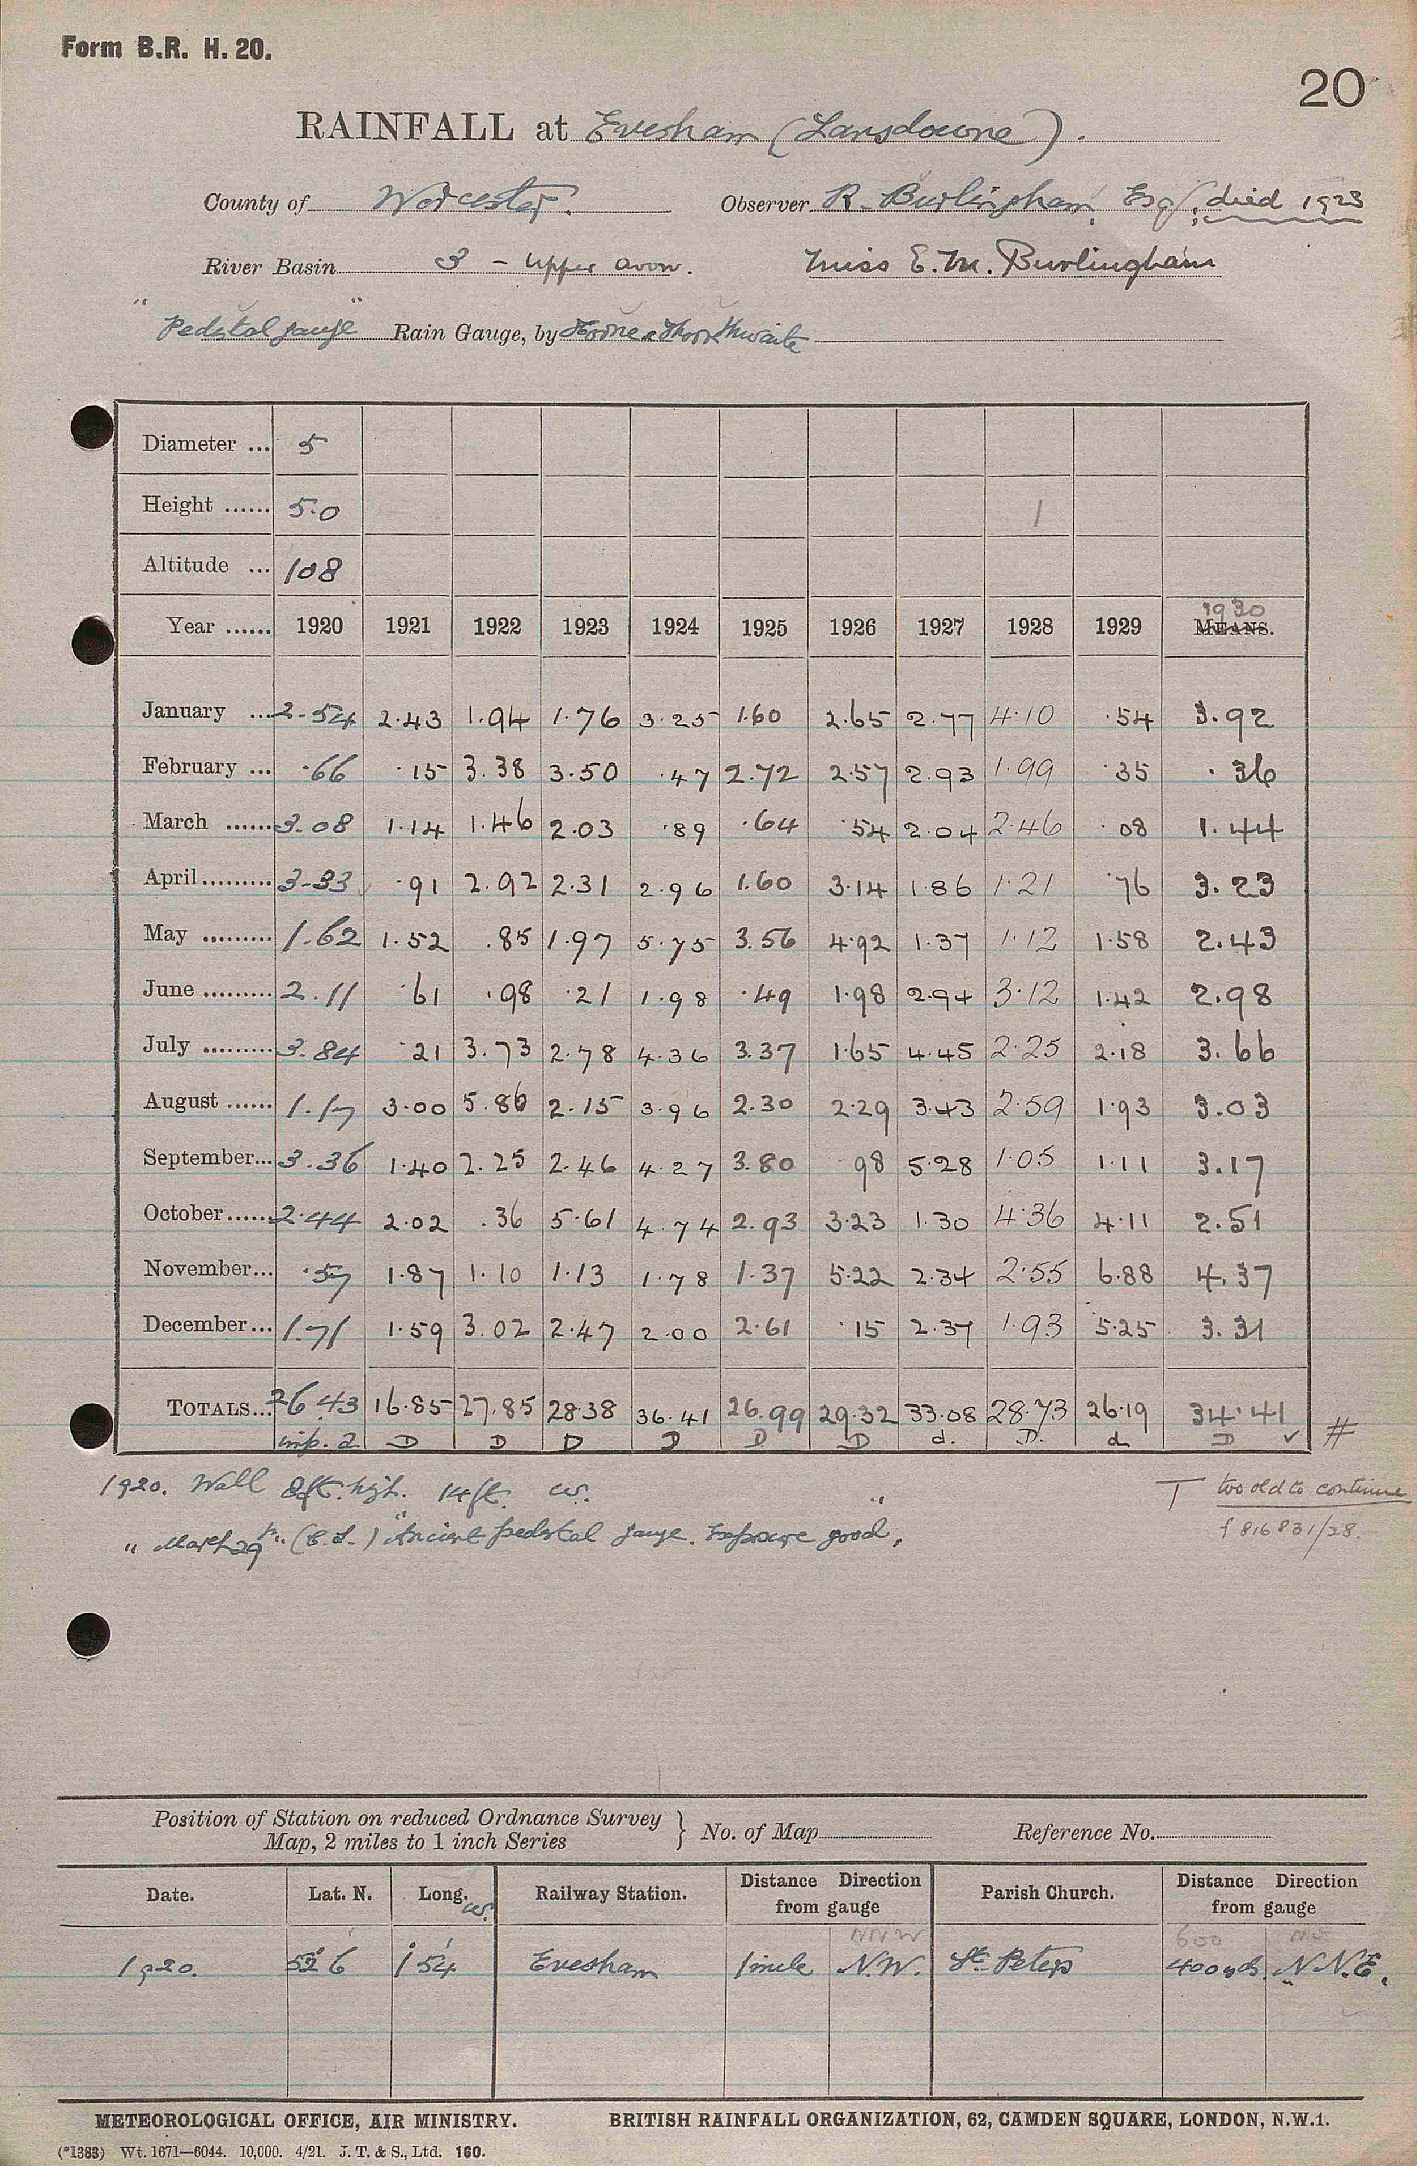 Form B.R. H. 20.
20
RAINFALL at Evesham (Lansdowne).
County of Worcester. Observer R. Burlingham, Esq; died 1923
River Basin 3 - Upper Avon. Miss E. M. Burlingham
"Pedestal gauge" Rain Gauge, by Horne & Thornthwaite
Diameter ... 5
Height ...... 5.0 1
Altitude ... 108
1930
Year ...... 1920 1921 1922 1923 1924 1925 1926 1927 1928 1929 MEANS.
January ... 2.54 2.43 1.94 1.76 3.25 1.60 2.65 2.77 4.10 .54 3.92
February ... .66 .15 3.38 3.50 .47 2.72 2.57 2.93 1.99 .35 .36
March ...... 3.08 1.14 1.46 2.03 .89 .64 .54 2.04 2.46 .08 1.44
April ......... 3.33 .91 2.92 2.31 2.96 1.60 3.14 1.86 1.21 .76 3.23
May ......... 1.62 1.52 .85 1.97 5.75 3.56 4.92 1.37 1.12 1.58 2.43
June ......... 2.11 .61 .98 .21 1.98 .49 1.98 2.94 3.12 1.42 2.98
July ......... 3.84 .21 3.73 2.78 4.36 3.37 1.65 4.45 2.25 2.18 3.66
August ...... 1.17 3.00 5.86 2.15 3.96 2.30 2.29 3.43 2.59 1.93 3.03
September... 3.36 1.40 2.25 2.46 4.27 3.80 .98 5.28 1.05 1.11 3.17
October...... 2.44 2.02 .36 5.61 4.74 2.93 3.23 1.30 4.36 4.11 2.51
November... .57 1.87 1.10 1.13 1.78 1.37 5.22 2.34 2.55 6.88 4.37
December... 1.71 1.59 3.02 2.47 2.00 2.61 .15 2.37 1.93 5.25 3.31
TOTALS... 26.43 16.85 27.85 28.38 36.41 26.99 29.32 33.08 28.73 26.19 34.41 #
inp. d D D D D D D d. D. d D ✓
1920. Wall 8ft. high. 14ft. W.
T too old to continue
f 816831/28.
" March 29th (C.S.) "Ancient pedestal gauge. Exposure good."
Position of Station on reduced Ordnance Survey
Map, 2 miles to 1 inch Series } No. of Map Reference No.
Date. Lat. N. Long. W. Railway Station. Distance Direction from gauge Parish Church. Distance Direction from gauge
NNW 600 NE
1920. 52° 6' 1° 54' Evesham 1 mile N.W. St. Peters 400 yds. N.N.E.
METEOROLOGICAL OFFICE, AIR MINISTRY. BRITISH RAINFALL ORGANIZATION, 62, CAMDEN SQUARE, LONDON, N.W.1.
(*1383) Wt. 1671—6044. 10,000. 4/21. J. T. & S., Ltd. 160.